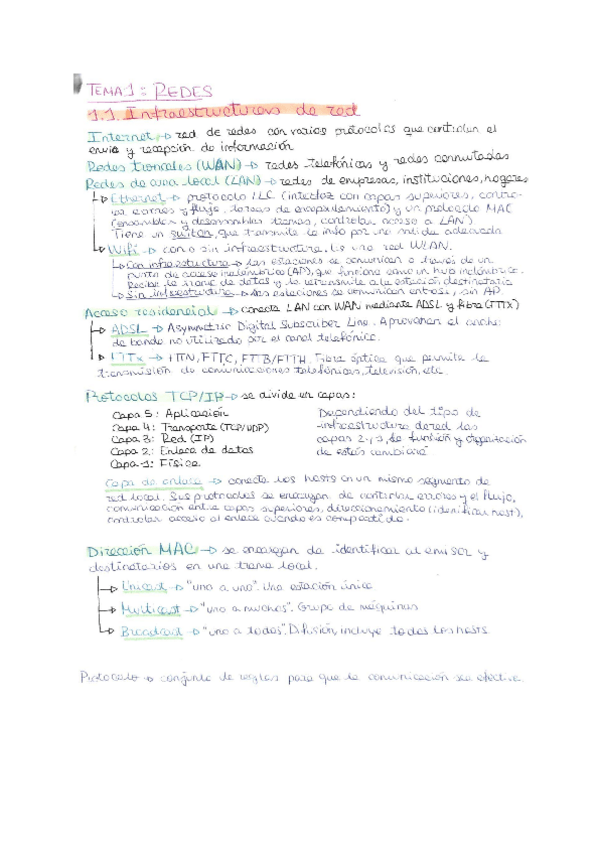 TEMA 1: REDES
1.1. Infraestructuras de red
Internet → red de redes con varios protocolos que controlan el
envío y recepción de información
Redes troncales (WAN) → redes telefónicas y redes conmutadas
Redes de área local (LAN) → redes de empresas, instituciones, hogares
↳ Ethernet → protocolo LLC (interfaz con capas superiores, contro-
les errores y flujo, tareas de encapsulamiento) y un protocolo MAC
(ensambles y desensambles tramas, controlar acceso a LAN)
Tiene un switch, que transmite la info por una salida adecuada
↳ Wifi → con o sin infraestructura. Es una red WLAN.
↳ Con infraestructura → las estaciones se comunican a través de un
punto de acceso inalámbrico (AP), que funciona como un hub inalámbrico.
Recibe la trama de datos y la retransmite a la estación destinataria
↳ Sin infraestructura → las estaciones se comunican entre sí, sin AP
Acceso residencial → conecta LAN con WAN mediante ADSL y fibra (FTTx)
↳ ADSL → Asymmetric Digital Subscriber Line. Aprovechan el ancho
de banda no utilizado por el canal telefónico.
↳ FTTx → FTTN, FTTC, FTTB/FTTH. Fibra óptica que permite la
transmisión de comunicaciones telefónicas, televisión, etc.
Protocolos TCP/IP → se divide en capas:
Capa 5: Aplicación
Capa 4: Transporte (TCP/UDP)
Capa 3: Red (IP)
Capa 2: Enlace de datos
Capa 1: Física
Dependiendo del tipo de
infraestructura de red las
capas 2 y 1, la función y
de éstas cambiará
Capa de enlace → conecta los hosts en un mismo segmento de
red local. Sus protocolos se encargan de controlar errores y el flujo,
comunicación entre capas superiores, direccionamiento (identificar host),
controlar acceso al enlace cuando es compartido.
Dirección MAC → se encargan de identificar al emisor y
destinatarios en una trama local.
↳ Unicast → "uno a uno". Una estación única
↳ Multicast → "uno a muchos". Grupo de máquinas
↳ Broadcast → "uno a todos". Difusión, incluye todos los hosts.
Protocolo → conjunto de reglas para que la comunicación sea efectiva